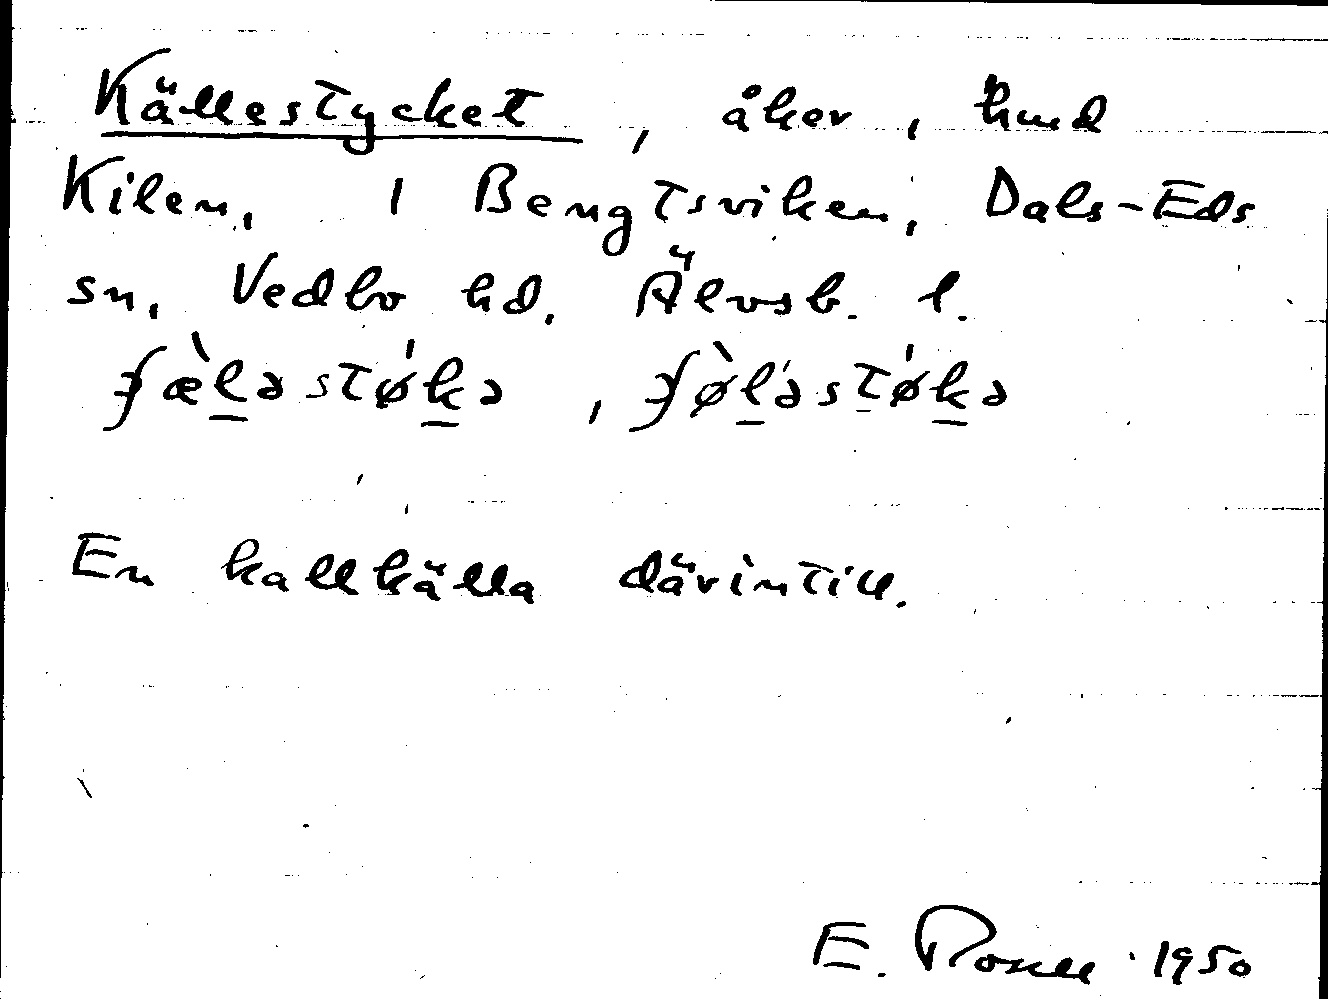 Källestycket, åker, hmd
Kilen, 1 Bengtsviken, Dals-Eds
sn, Vedbo hd. Älvsb. l.
ʄæ̀l̲əstǿk̲ə, ʄø̀l̲ə́st̲ǿk̲ə
En kallkälla därintill.
E. 1950